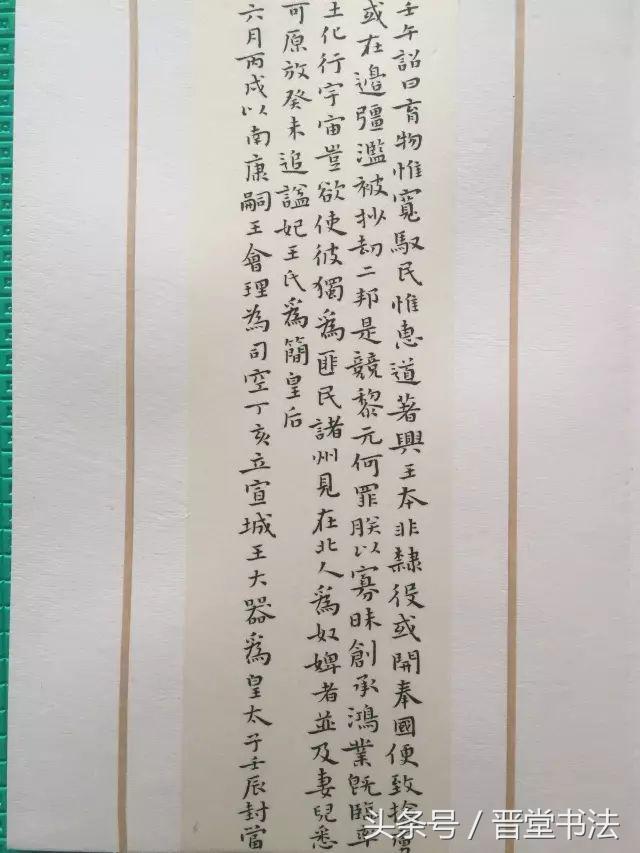 壬午詔曰育物惟寬馭民惟惠道著興王本非隸役或開奉國便致擒虜
或在邊疆濫被抄劫二邦是競黎元何罪朕以寡昧創承鴻業既臨率
土化行宇宙豈欲使彼獨爲匪民諸州見在北人爲奴婢者並及妻兒悉
可原放癸未追謚妃王氏爲簡皇后
六月丙戌以南康嗣王會理為司空丁亥立宣城王大器爲皇太子壬辰封當
头条号 / 晋堂书法